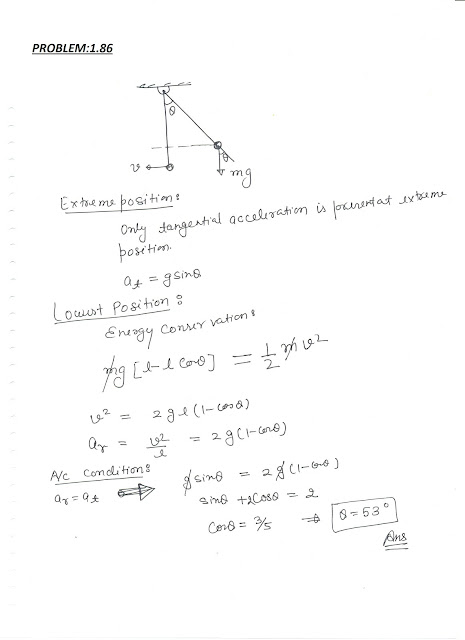 PROBLEM:1.86
θ
θ
v
mg
Extreme position:
Only tangential acceleration is present at extreme
position.
at = gsinθ
Lowest Position:
Energy Conservation:
mg [l-l cosθ] = 1/2 m v²
v² = 2gl(1-cosθ)
ar = v²/l = 2g(1-cosθ)
A/c Conditions
ar = at ⇒ gsinθ = 2g(1-cosθ)
sinθ + 2cosθ = 2
Cosθ = 3/5 ⇒ θ = 53°
Ans